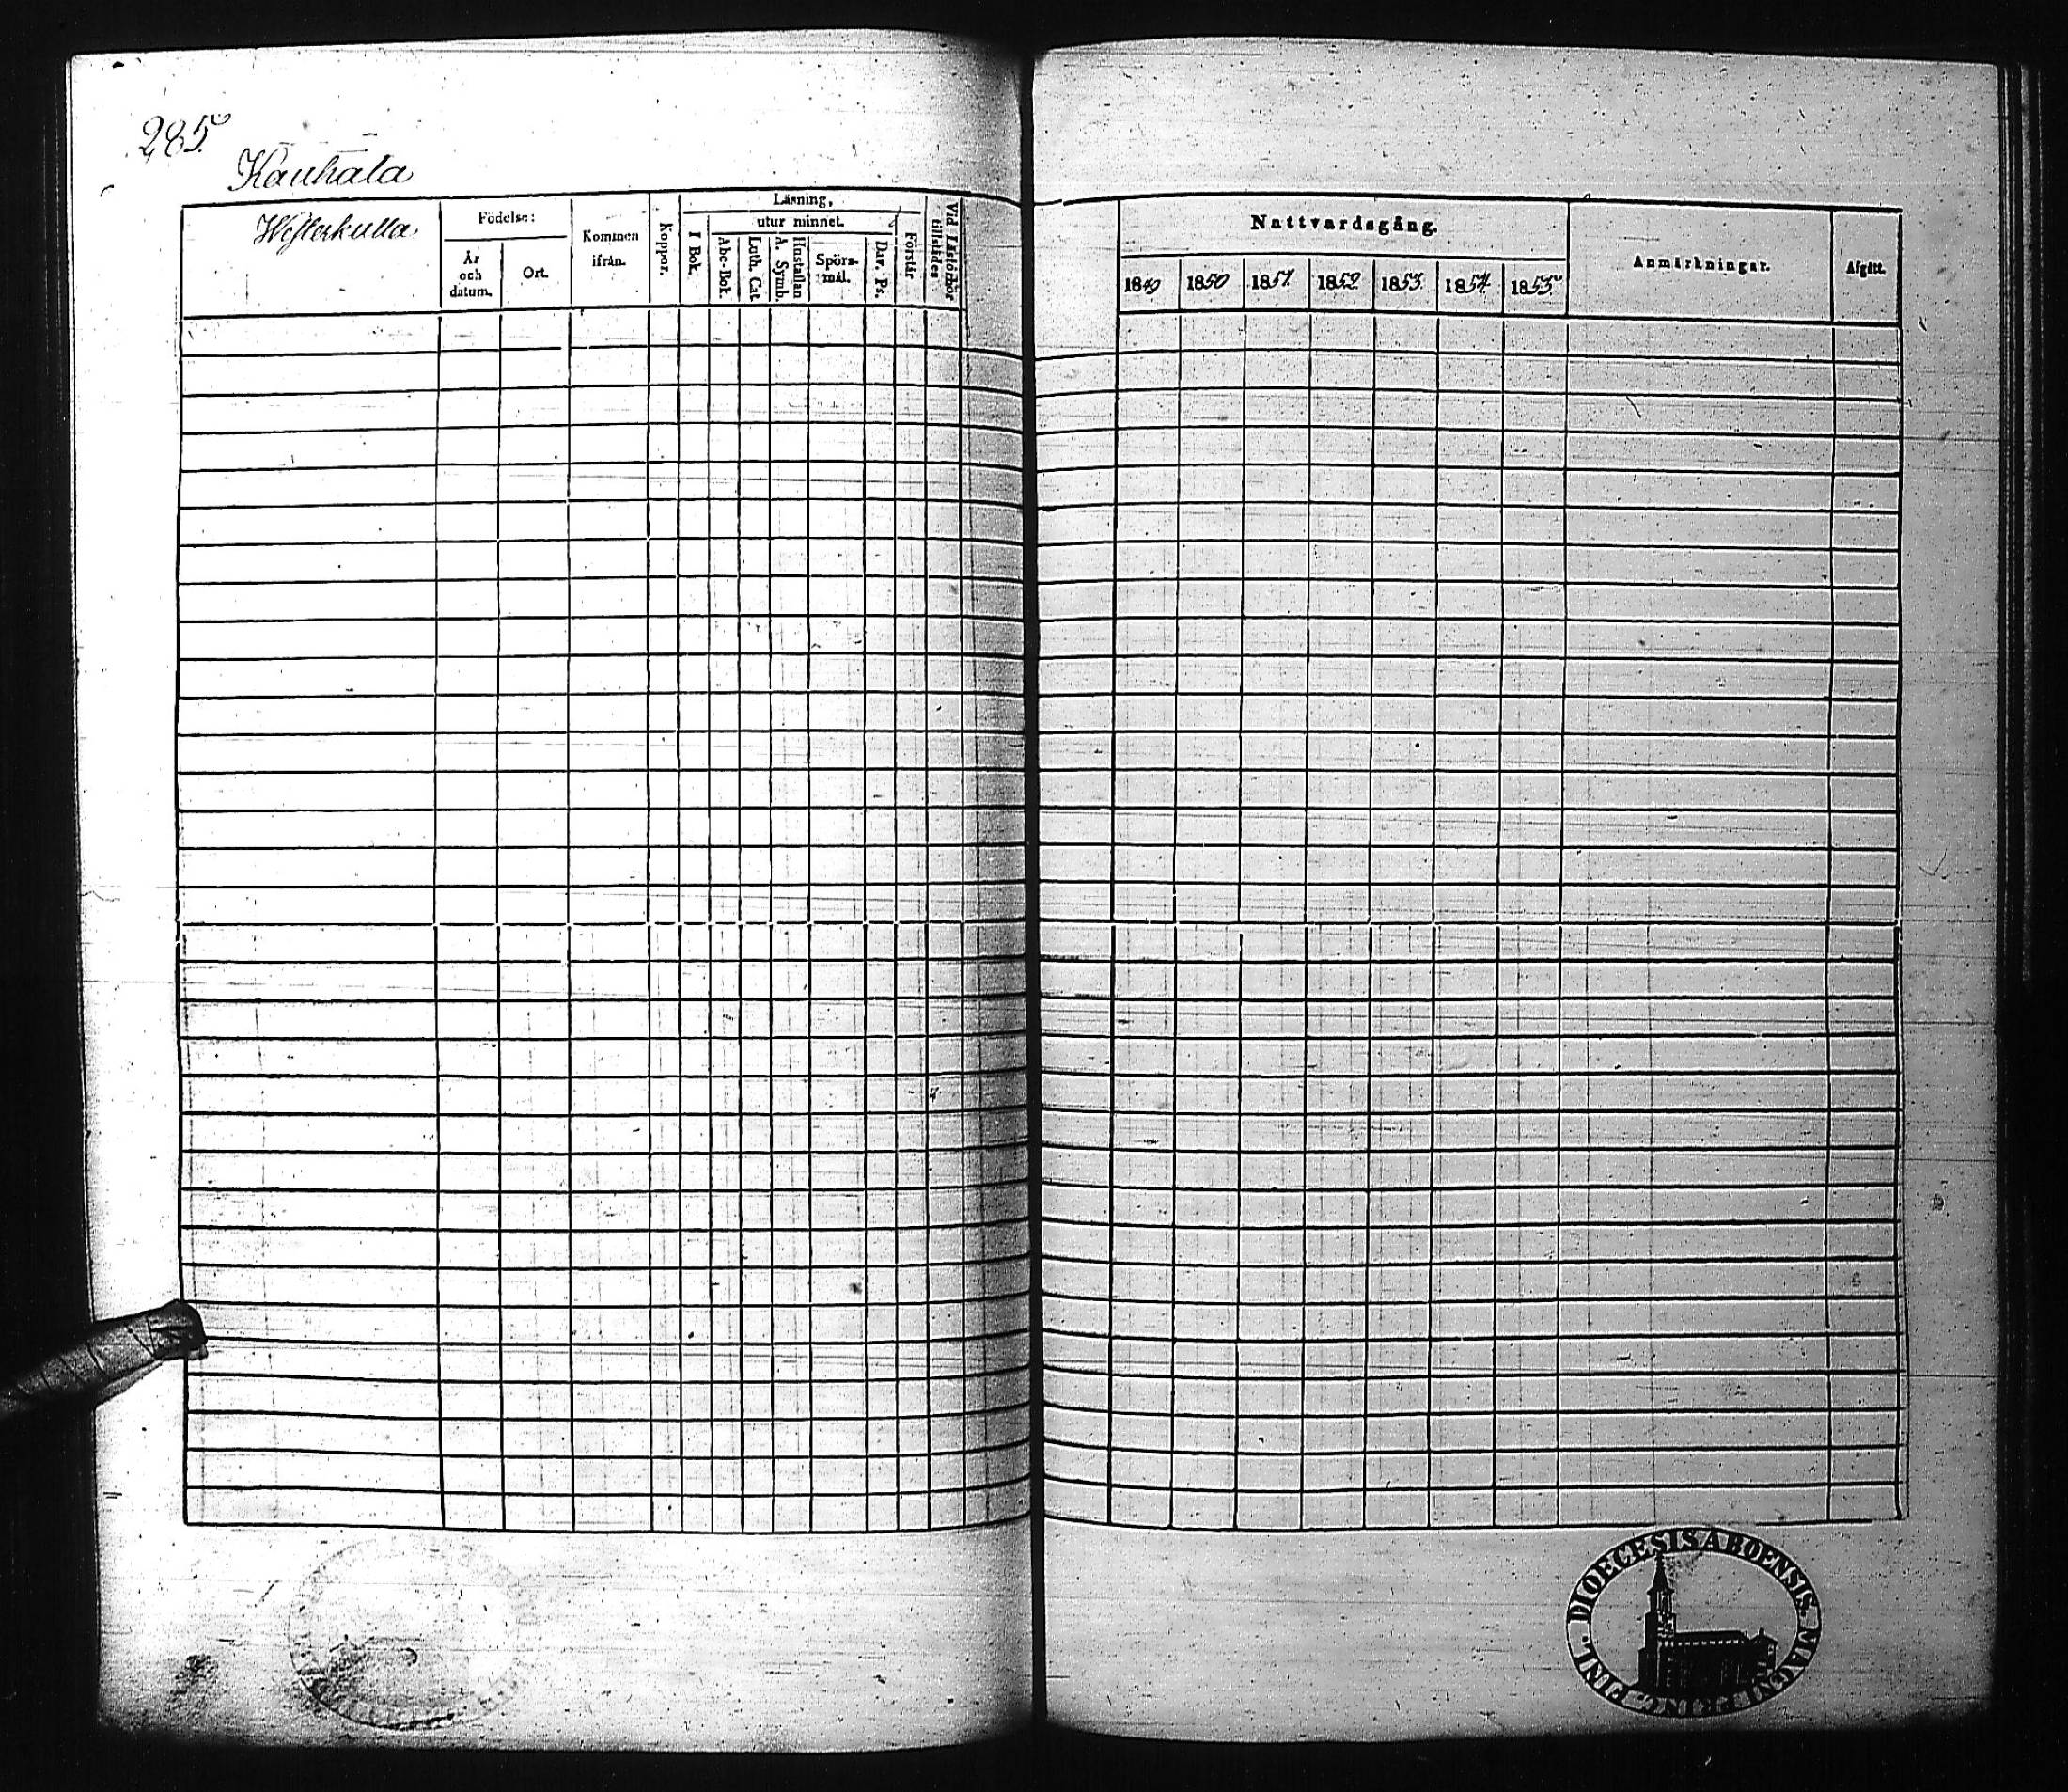 285
Kauhala
Westerkulla
Födelse:
År och datum.
Ort.
Kommen ifrån.
Koppor.
Läsning,
I Bok.
utur minnet.
Abc-Bok.
Luth. Cat.
Hustaflan
A. Symb.
Spörsmål.
Dav. Ps.
Förstår
Vid Läsförhör
tillstädes
Nattvardsgång.
1849 1850 1851 1852 1853 1854 1855
Anmärkningar.
Afgått.
FINL. DIOECESIS ABOENSIS. MAGNI PRINC.